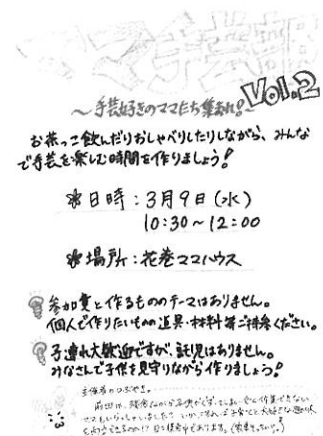 ママ手芸部
Vol.2
～手芸好きのママたち集まれ！～
お茶っこ飲んだりおしゃべりしたりしながら、みんな
で手芸を楽しむ時間を作りましょう！
※日時：3月9日（水）
10:30～12:00
※場所：花巻ママハウス
参加費と作るもののテーマはありません。
個人で作りたいものの道具・材料等ご持参ください。
子連れ大歓迎ですが、託児はありません。
みなさんで子供を見守りながら作りましょう！
主催者のつぶやき…
前回は、残念ながら